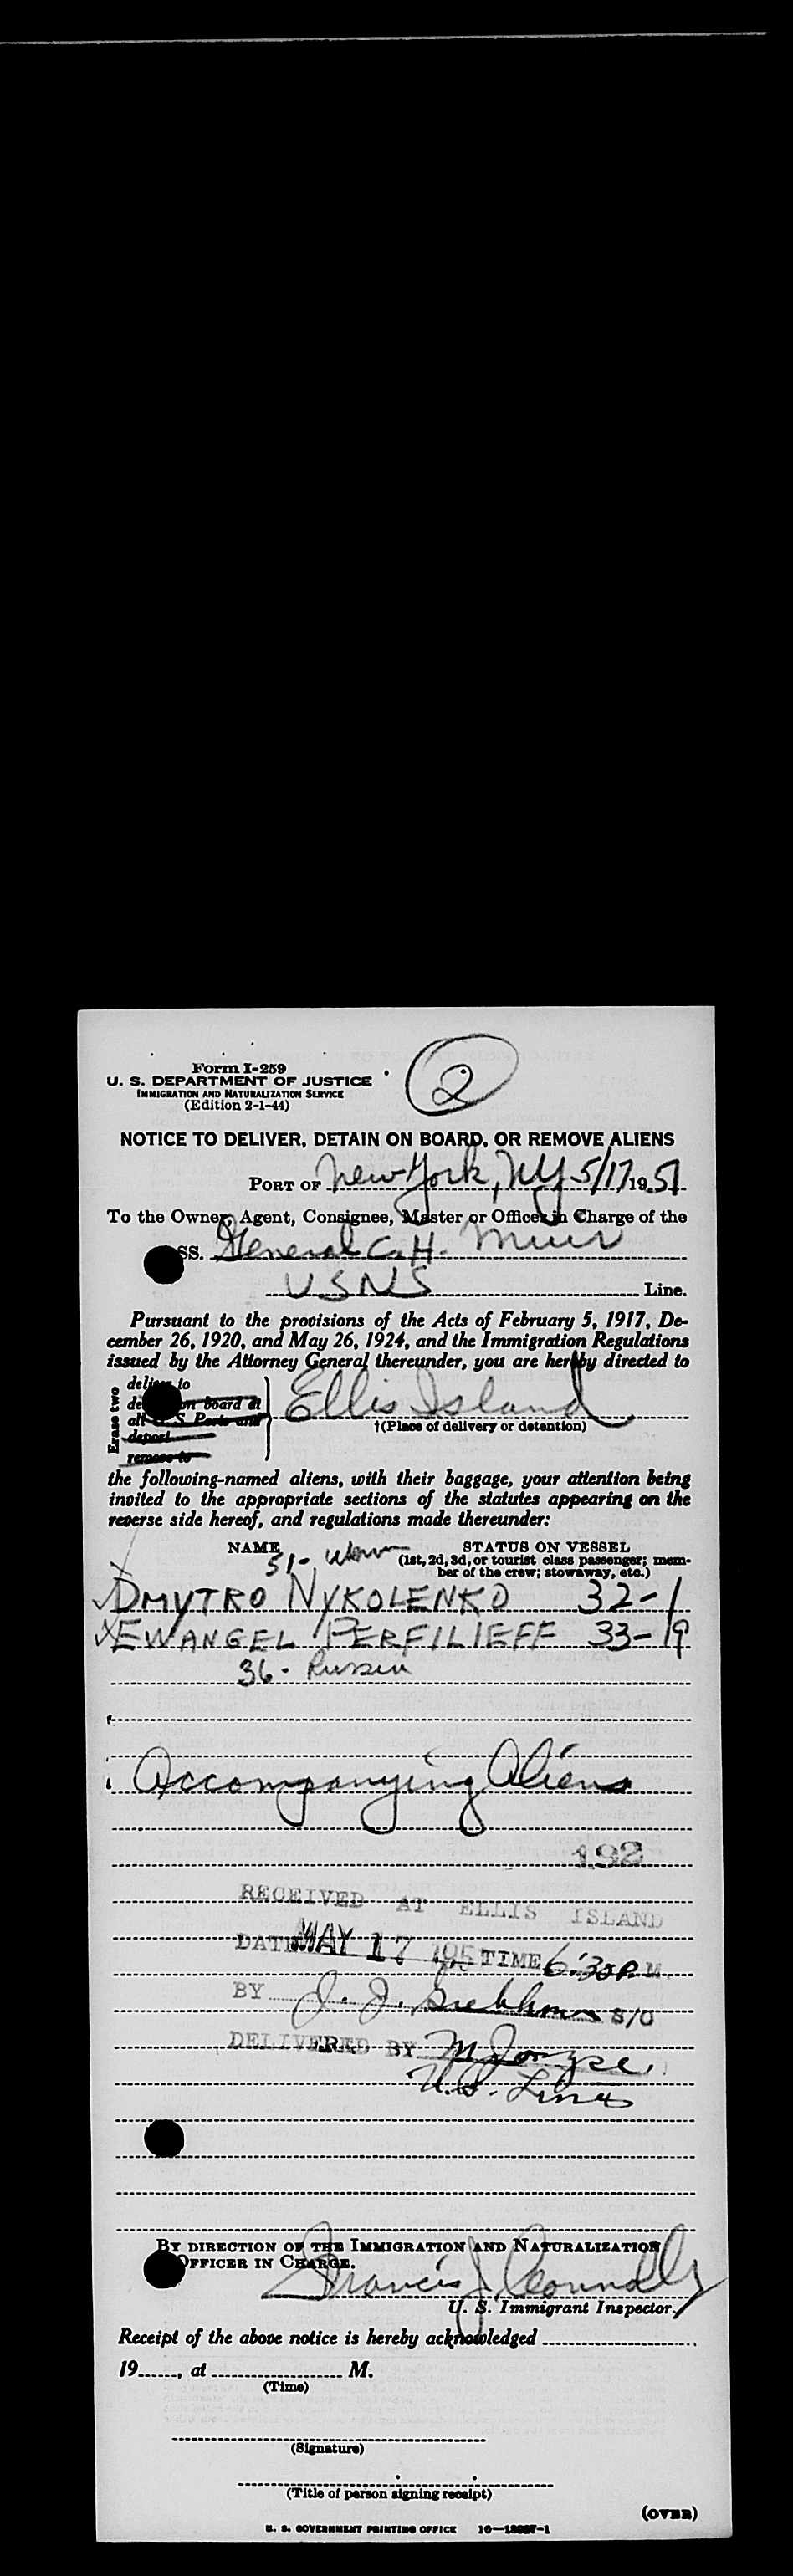 Form I-259
U. S. DEPARTMENT OF JUSTICE
IMMIGRATION AND NATURALIZATION SERVICE
(Edition 2-1-44)
2
NOTICE TO DELIVER, DETAIN ON BOARD, OR REMOVE ALIENS
PORT OF New York, NY 5/17 1951
To the Owner, Agent, Consignee, Master or Officer in Charge of the
SS. General C. H. Muir
USNS Line.
Pursuant to the provisions of the Acts of February 5, 1917, De-
cember 26, 1920, and May 26, 1924, and the Immigration Regulations
issued by the Attorney General thereunder, you are hereby directed to
Erase two
deliver to
on board at
all U. S. Ports and
deport
remove to
Ellis Island
†(Place of delivery or detention)
the following-named aliens, with their baggage, your attention being
invited to the appropriate sections of the statutes appearing on the
reverse side hereof, and regulations made thereunder:
NAME STATUS ON VESSEL
(1st, 2d, 3d, or tourist class passenger; mem-
ber of the crew; stowaway, etc.)
51-
DMYTRO NYKOLENKO 32-1
EWANGEL PERFILIEFF 33-19
36- Russian
Accompanying Aliens
192
RECEIVED AT ELLIS ISLAND
DATE MAY 17 195 TIME 6:30 P M.
BY J. J. S/O
DELIVERED BY M
U.S. Lines
BY DIRECTION OF THE IMMIGRATION AND NATURALIZATION
OFFICER IN CHARGE.
Francis J. Connolly
U. S. Immigrant Inspector.
Receipt of the above notice is hereby acknowledged
19......, at M.
(Time)
(Signature)
(Title of person signing receipt)
(OVER)
U. S. GOVERNMENT PRINTING OFFICE